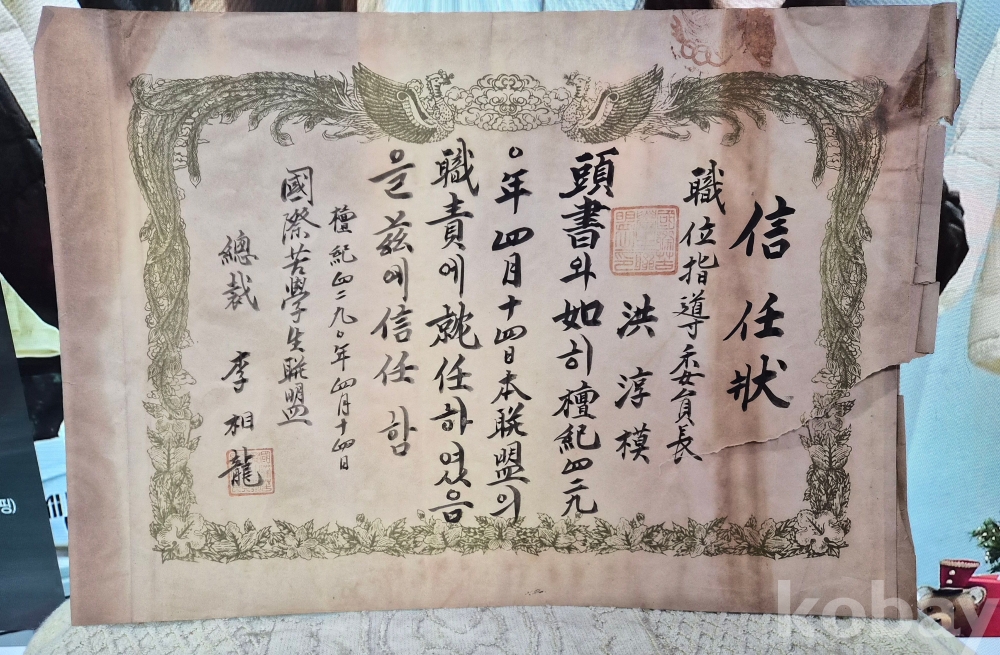 信任狀
職位指導委員長
洪淳模
頭書와如히檀紀四二九
〇年四月十四日本聯盟의
職責에就任하였음
을玆에信任함
檀紀四二九〇年四月十四日
國際苦學生聯盟
總裁 李相龍
핑)
kobay